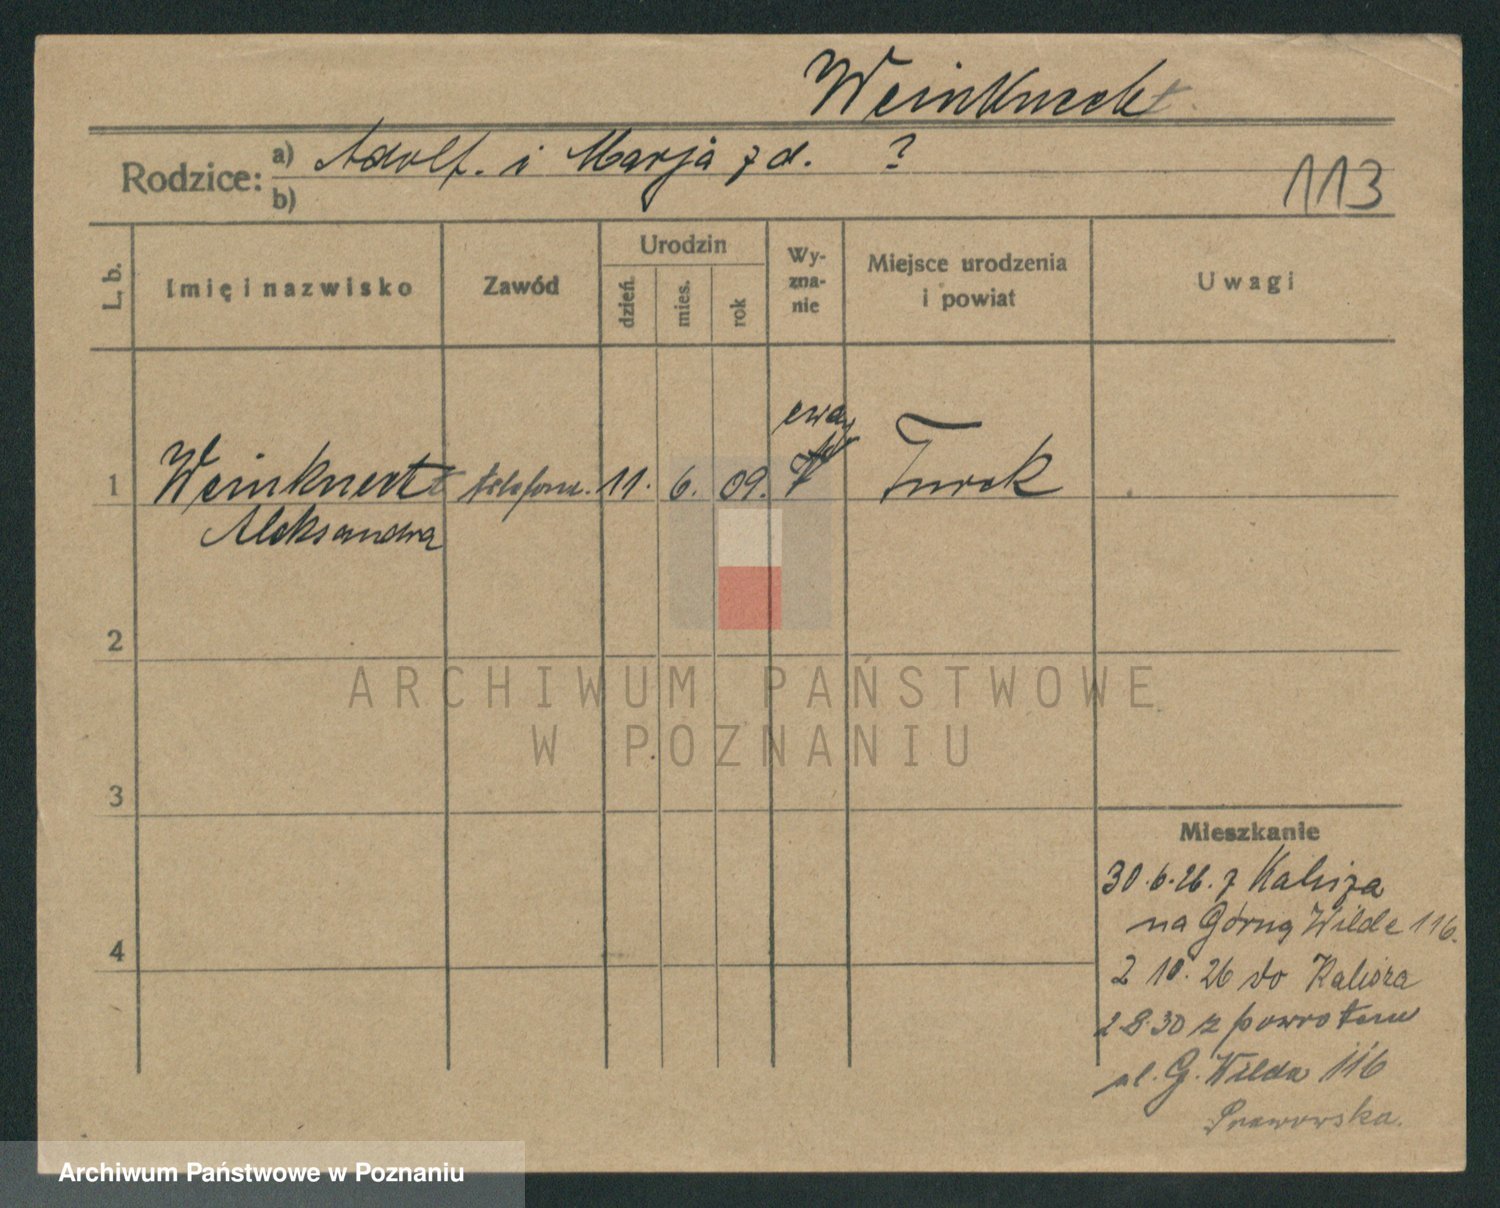 Weinknecht
Rodzice: a) Adolf. i Marja z d. ?
b)
113
L. b.
Imię i nazwisko
Zawód
Urodzin
dzień.
mies.
rok
Wy-
zna-
nie
Miejsce urodzenia
i powiat
Uwagi
1 Weinknecht telefon. 11. 6. 09. ewang Turek
Aleksandra
2
3
4
Mieszkanie
30.6.26. z Kalisza
na Górną Wilde 116.
2 10. 26 do Kalisza
2 8. 30 z powrotem
ul. G. Wilda 116
ARCHIWUM PAŃSTWOWE
W POZNANIU
Archiwum Państwowe w Poznaniu